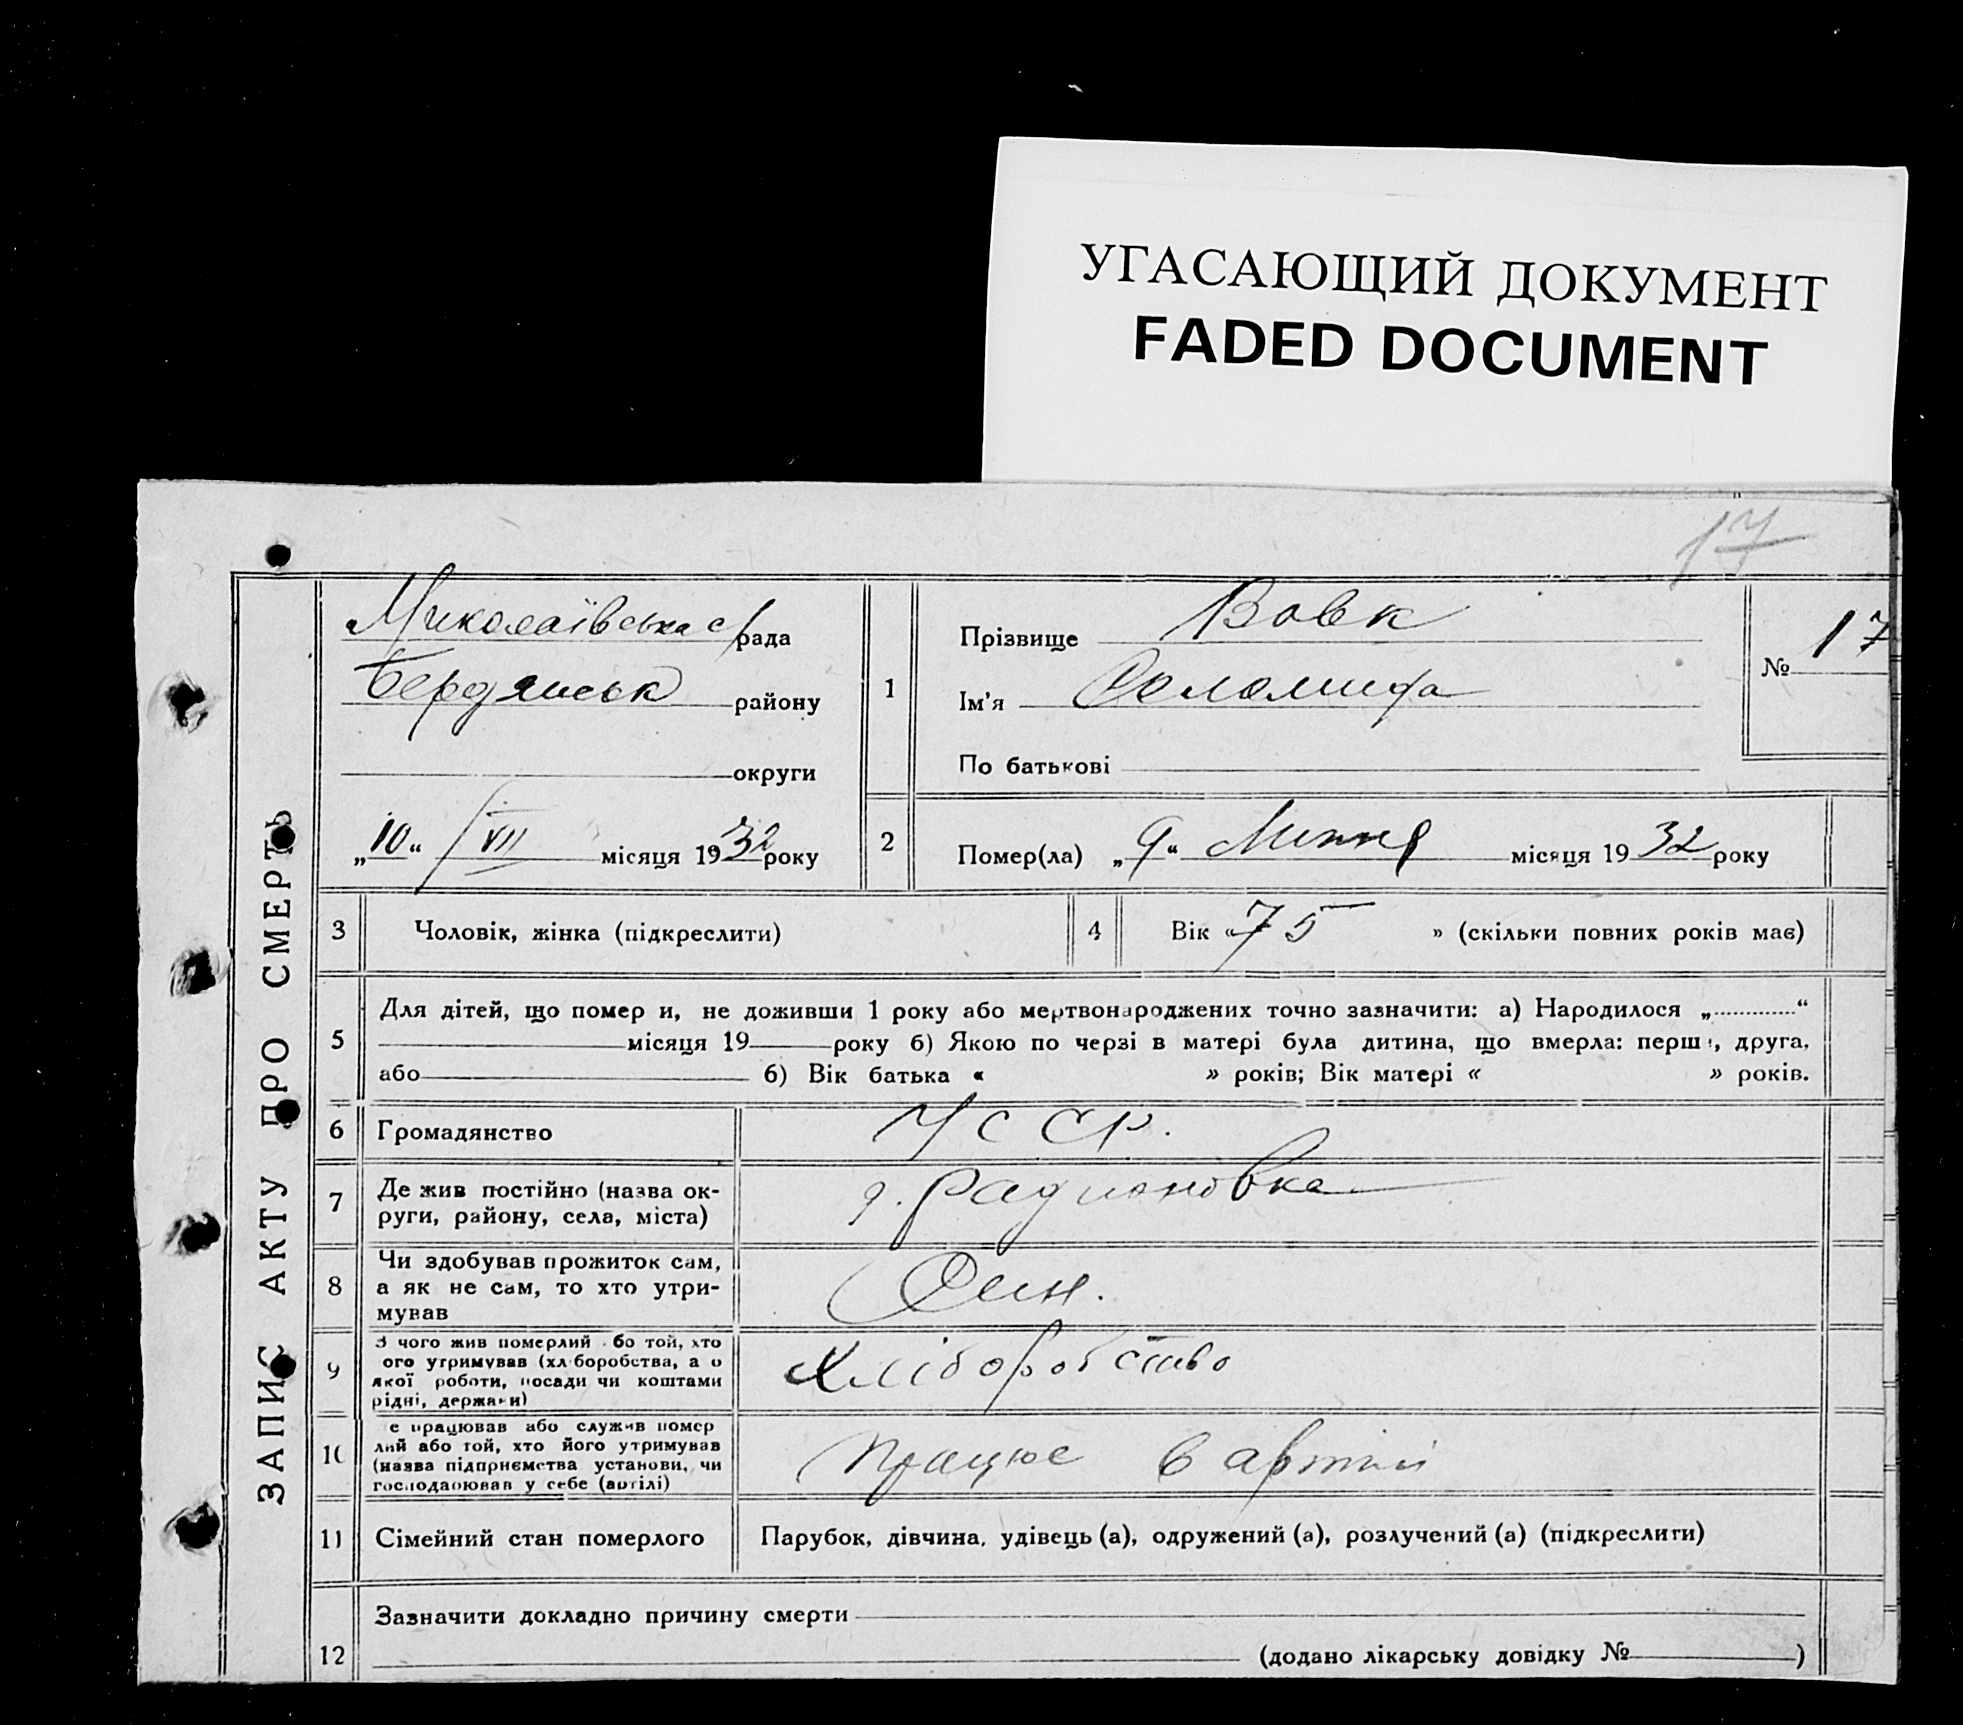 УГАСАЮЩИЙ ДОКУМЕНТ
FADED DOCUMENT
17
ЗАПИС АКТУ ПРО СМЕРТЬ
Миколаївська с/рада
Бердянськ району
округи
„10“ VII місяця 1932 року
1
Прізвище Вовк
Ім'я Соломия
По батькові
№ 17
2
Помер(ла) „9“ Липня місяця 1932 року
3 Чоловік, жінка (підкреслити)
4 Вік «75 » (скільки повних років має)
5
Для дітей, що помер и, не доживши 1 року або мертвонароджених точно зазначити: а) Народилося „ “
місяця 19 року б) Якою по черзі в матері була дитина, що вмерла: перш , друга,
або б) Вік батька « » років; Вік матері « » років.
6 Громадянство УССР.
7
Де жив постійно (назва ок-
руги, району, села, міста)
д. Радионовка
8
Чи здобував прожиток сам,
а як не сам, то хто утри-
мував
Син.
9
З чого жив померлий бо той, хто
ого утримував (хл боробства, а о
якої роботи, посади чи коштами
рідні, держави)
Хліборобство
10
е працював або служив помер
лий або той, хто його утримував
(назва підприємства установи, чи
господарював у себе (артілі)
Працює в артілі
11 Сімейний стан померлого Парубок, дівчина, удівець (а), одружений (а), розлучений (а) (підкреслити)
12
Зазначити докладно причину смерти
(додано лікарську довідку № )